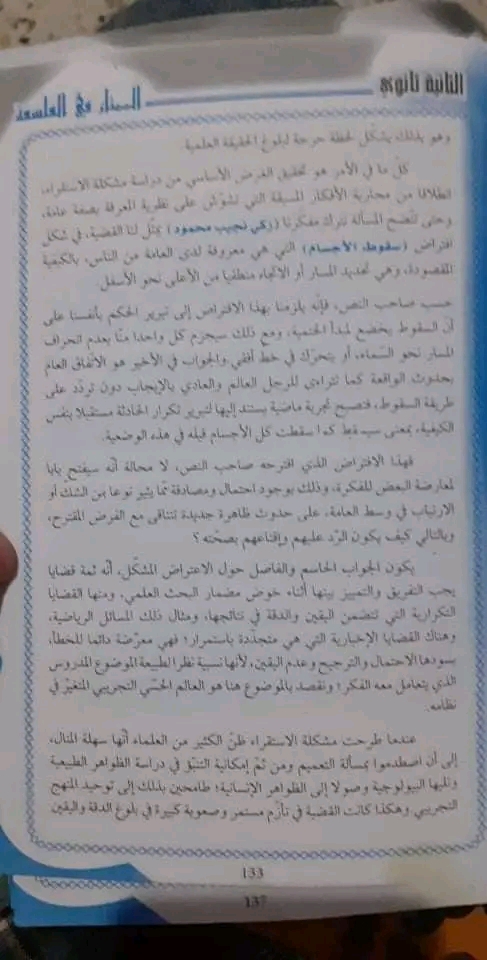 الثانية ثانوي
السناء في الفلسفة
وهو بذلك يشكل لحظة حرجة لبلوغ الحقيقة العلمية.
كل ما في الأمر هو تحقيق الغرض الأساسي من دراسة مشكلة الاستقراء،
انطلاقا من محاربة الأفكار المسبقة التي تشوّش على نظرية المعرفة بصفة عامة،
وحتى تتضح المسألة نترك مفكرنا (زكي نجيب محمود) يمثّل لنا القضية، في شكل
افتراض (سقوط الأجسام) التي هي معروفة لدى العامة من الناس، بالكيفية
المقصودة، وهي تحديد المسار أو الاتجاه منطقيا من الأعلى نحو الأسفل.
حسب صاحب النص، فإنه يلزمنا بهذا الافتراض إلى تبرير الحكم بأنفسنا على
أن السقوط يخضع لمبدأ الحتمية، ومع ذلك سيجزم كل واحدا منّا بعدم انحراف
المسار نحو السماء، أو يتحرّك في خط أفقي والجواب في الأخير هو الاتفاق العام
بحدوث الواقعة كما تتراءى للرجل العالم والعادي بالإيجاب دون تردّد على
طريقة السقوط، فتصبح تجربة ماضية يستند إليها لتبرير تكرار الحادثة مستقبلا بنفس
الكيفية، بمعنى سيسقط كما سقطت كل الأجسام قبله في هذه الوضعية.
فهذا الافتراض الذي اقترحه صاحب النص، لا محالة أنه سيفتح بابا
لمعارضة البعض للفكرة، وذلك بوجود احتمال ومصادفة ممّا يثير نوعا من الشك أو
الارتياب في وسط العامة، على حدوث ظاهرة جديدة تتنافى مع الفرض المقترح،
وبالتالي كيف يكون الرّد عليهم وإقناعهم بصحّته؟
يكون الجواب الحاسم والفاصل حول الاعتراض المشكّل، أنه ثمة قضايا
يجب التفريق والتمييز بينها أثناء خوض مضمار البحث العلمي، ومنها القضايا
التكرارية التي تتضمن اليقين والدقة في نتائجها، ومثال ذلك المسائل الرياضية،
وهناك القضايا الإخبارية التي هي متجدّدة باستمرار؛ فهي معرّضة دائما للخطأ،
يسودها الاحتمال والترجيح وعدم اليقين، لأنها نسبية نظرا لطبيعة الموضوع المدروس
الذي يتعامل معه الفكر؛ ونقصد بالموضوع هنا هو العالم الحسّي التجريبي المتغيّر في
نظامه.
عندما طرحت مشكلة الاستقراء ظنّ الكثير من العلماء أنها سهلة المنال،
إلى أن اصطدموا بمسألة التعميم ومن ثمّ إمكانية التنبّؤ في دراسة الظواهر الطبيعية
وتليها البيولوجية وصولا إلى الظواهر الإنسانية؛ طامحين بذلك إلى توحيد المنهج
التجريبي وهكذا كانت القضية في تأزّم مستمر وصعوبة كبيرة في بلوغ الدقة واليقين
133
137